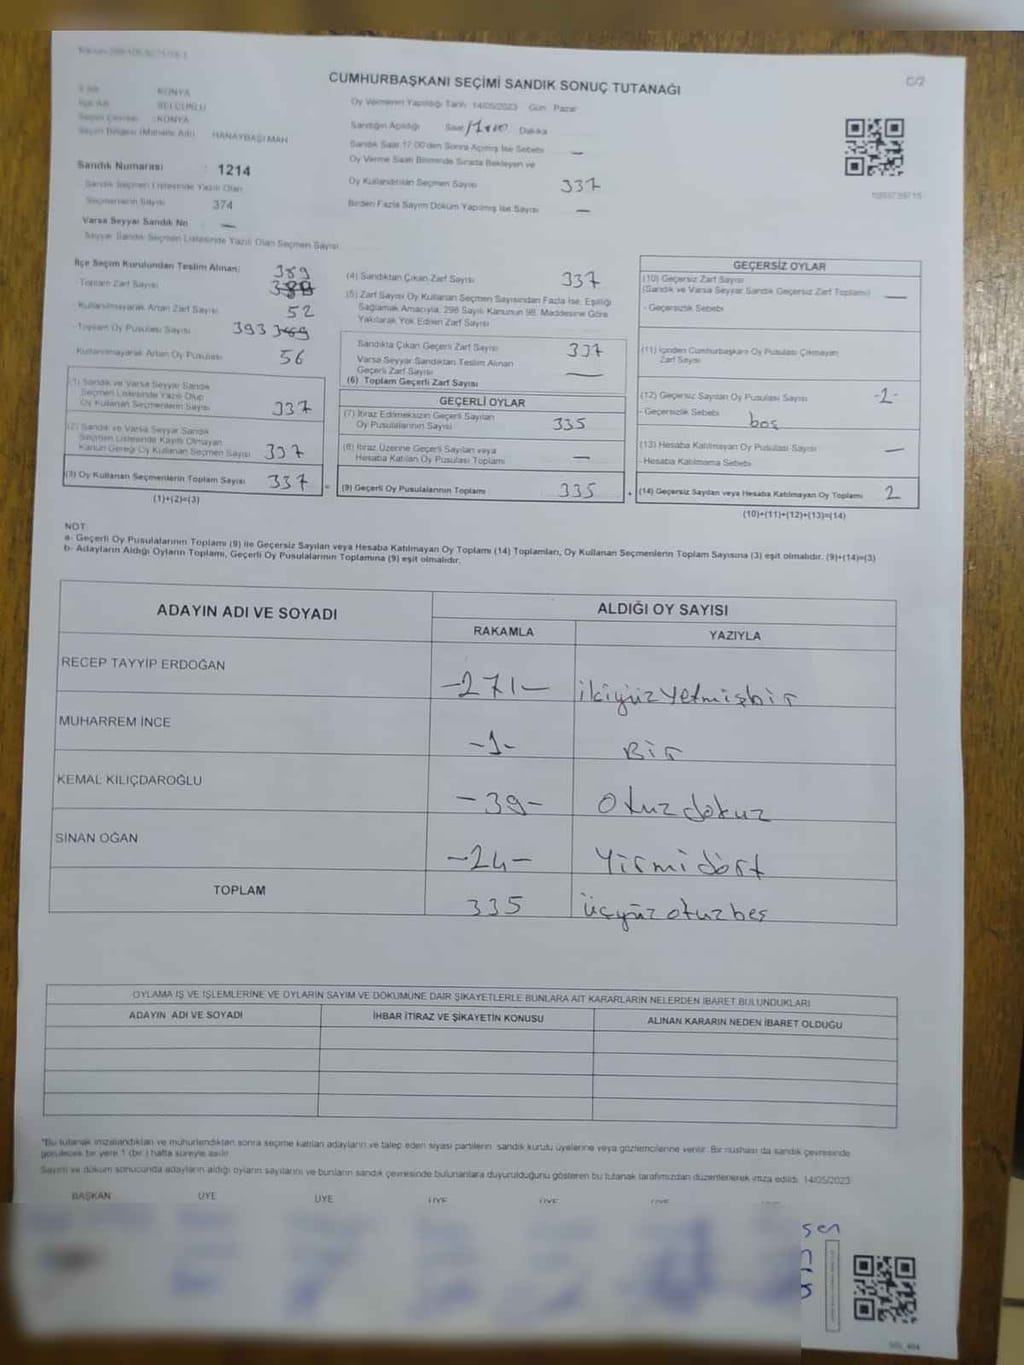 C/2
CUMHURBAŞKANI SEÇİMİ SANDIK SONUÇ TUTANAĞI
KONYA
SELÇUKLU
KONYA
Seçim Bölgesi (Mahalle Adı) HANAYBAŞI MAH
Sandık Numarası : 1214
Sandık Seçmen Listesinde Yazılı Olan
Seçmenlerin Sayısı 374
Varsa Seyyar Sandık No —
Seyyar Sandık Seçmen Listesinde Yazılı Olan Seçmen Sayısı
Oy Vermenin Yapıldığı Tarih 14/05/2023 Gün Pazar
Sandığın Açıldığı Saat Dakika
Sandık Saat 17.00'den Sonra Açılmış İse Sebebi —
Oy Verme Saati Bitiminde Sırada Bekleyen ve
Oy Kullandırılan Seçmen Sayısı 337
Birden Fazla Sayım Döküm Yapılmış İse Sayısı —
İlçe Seçim Kurulundan Teslim Alınan;
Toplam Zarf Sayısı 389
Kullanılmayarak Artan Zarf Sayısı 52
Toplam Oy Pusulası Sayısı 393
Kullanılmayarak Artan Oy Pusulası 56
(1) Sandık ve Varsa Seyyar Sandık
Seçmen Listesinde Yazılı Olup
Oy Kullanan Seçmenlerin Sayısı 337
(2) Sandık ve Varsa Seyyar Sandık
Seçmen Listesinde Kayıtlı Olmayan
Kanun Gereği Oy Kullanan Seçmen Sayısı 337
(3) Oy Kullanan Seçmenlerin Toplam Sayısı 337
(1)+(2)=(3)
(4) Sandıktan Çıkan Zarf Sayısı 337
(5) Zarf Sayısı Oy Kullanan Seçmen Sayısından Fazla İse, Eşitliği
Sağlamak Amacıyla, 298 Sayılı Kanunun 98. Maddesine Göre
Yakılarak Yok Edilen Zarf Sayısı
Sandıkta Çıkan Geçerli Zarf Sayısı 337
Varsa Seyyar Sandıktan Teslim Alınan
Geçerli Zarf Sayısı —
(6) Toplam Geçerli Zarf Sayısı
GEÇERLİ OYLAR
(7) İtiraz Edilmeksizin Geçerli Sayılan
Oy Pusulalarının Sayısı 335
(8) İtiraz Üzerine Geçerli Sayılan veya
Hesaba Katılan Oy Pusulası Toplamı —
(9) Geçerli Oy Pusulalarının Toplamı 335
GEÇERSİZ OYLAR
(10) Geçersiz Zarf Sayısı
(Sandık ve Varsa Seyyar Sandık Geçersiz Zarf Toplamı) —
- Geçersizlik Sebebi
(11) İçinden Cumhurbaşkanı Oy Pusulası Çıkmayan
Zarf Sayısı
(12) Geçersiz Sayılan Oy Pusulası Sayısı -2-
- Geçersizlik Sebebi boş
(13) Hesaba Katılmayan Oy Pusulası Sayısı —
- Hesaba Katılmama Sebebi
(14) Geçersiz Sayılan veya Hesaba Katılmayan Oy Toplamı 2
(10)+(11)+(12)+(13)=(14)
NOT:
a- Geçerli Oy Pusulalarının Toplamı (9) ile Geçersiz Sayılan veya Hesaba Katılmayan Oy Toplamı (14) Toplamları, Oy Kullanan Seçmenlerin Toplam Sayısına (3) eşit olmalıdır. (9)+(14)=(3)
b- Adayların Aldığı Oyların Toplamı, Geçerli Oy Pusulalarının Toplamına (9) eşit olmalıdır.
ADAYIN ADI VE SOYADI ALDIĞI OY SAYISI
RAKAMLA YAZIYLA
RECEP TAYYİP ERDOĞAN -271- ikiyüzyetmişbir
MUHARREM İNCE -1- Bir
KEMAL KILIÇDAROĞLU -39- Otuzdokuz
SİNAN OĞAN -24- Yirmidört
TOPLAM 335 üçyüzotuzbeş
OYLAMA İŞ VE İŞLEMLERİNE VE OYLARIN SAYIM VE DÖKÜMÜNE DAİR ŞİKAYETLERLE BUNLARA AİT KARARLARIN NELERDEN İBARET BULUNDUKLARI
ADAYIN ADI VE SOYADI İHBAR İTİRAZ VE ŞİKAYETİN KONUSU ALINAN KARARIN NEDEN İBARET OLDUĞU
"Bu tutanak imzalandıktan ve mühürlendikten sonra seçime katılan adayların ve talep eden siyasi partilerin sandık kurulu üyelerine veya gözlemcilerine verilir. Bir nüshası da sandık çevresinde
görülecek bir yere 1 (bir ) hafta süreyle asılır.
Sayım ve döküm sonucunda adayların aldığı oyların sayılarını ve bunların sandık çevresinde bulunanlara duyurulduğunu gösteren bu tutanak tarafımızdan düzenlenerek imza edildi. 14/05/2023
BAŞKAN ÜYE ÜYE ÜYE ÜYE ÜYE
sen